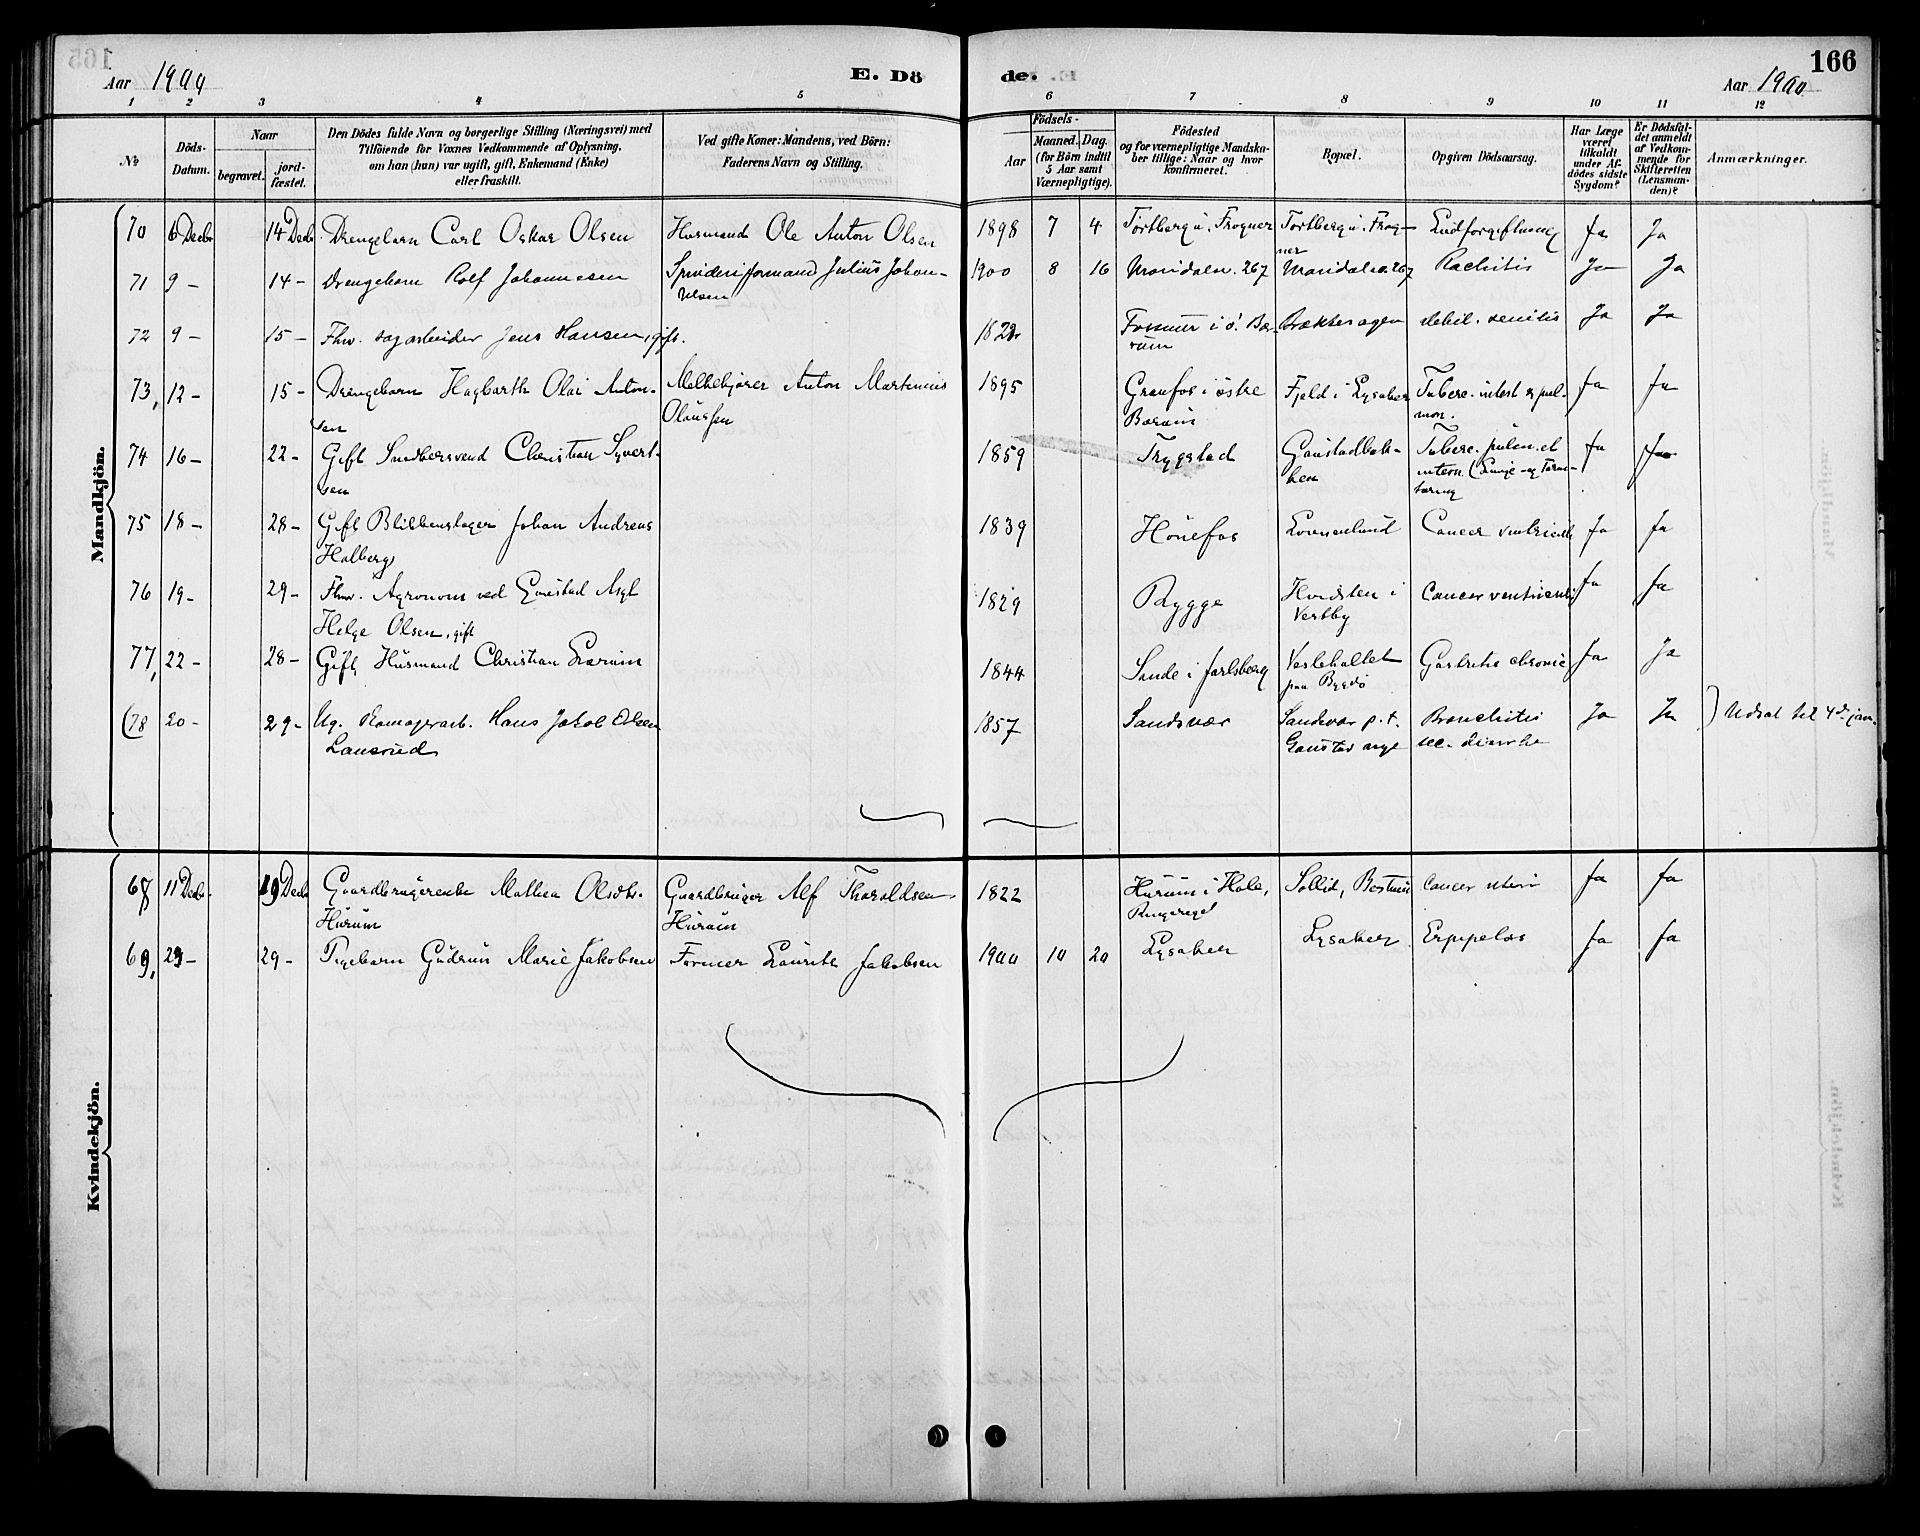 Aar 1900 E. Dö
de. Aar 1900 166
1 2 3 4 5 6 7 8 9 10 11 12
№
Döds-Datum.
Naar
begravet.
jordfæstet.
Den Dödes fulde Navn og borgerlige Stilling (Næringsvei) med
Tilföiende for Voxnes Vedkommende af Oplysning,
om han (hun) var ugift, gift, Enkemand (Enke)
eller fraskilt.
Ved gifte Koner: Mandens, ved Börn:
Faderens Navn og Stilling.
Födsels-
Aar
Maaned. Dag.
(for Börn indtil
5 Aar samt
Værnepligtige).
Födested
og for værnepligtige Mandskaber tillige: Naar og hvor
konfirmeret.
Bopæl.
Opgiven Dödsaarsag.
Har Læge
været
tilkaldt
under Afdödes sidste
Sygdom?
Er Dödsfaldet anmeldt
af Vedkommende for
Skifteretten
(Lensmanden)?
Anmærkninger.
Mandkjön.
70 6 Decbr 14 Decbr Drengebarn Carl Oskar Olsen Husmand Ole Anton Olsen 1898 7 4 Tortberg u. Frogner Tortberg u. Frogner Ja Ja
71 9 – 14 – Drengebarn Rolf Johannesen Spinderiformand Julius Johannesen 1900 8 16 Maridalsv. 267 Maridalsv. 267 Rachitis Ja Ja
72 9 – 15 – Fhv. sagarbeider Jens Hansen, gift. Fossum i ö. Bærum Brækkehagen debil. senilis Ja Ja
73, 12 – 15 – Drengebarn Hagbarth Olai Antonsen Melkekjører Anton Martinius Olaussen 1895 Granfos i østre Bærum Fjeld i Lysaker Tuberc. intest & pulmon. Ja Ja
74 16 – 22 – Gift Snedkersvend Christian Syvertsen 1859 Trygstad Gaustadbakken Tuberc. pulm. et intern (Lunge- og Tarmtæring Ja Ja
75 18 – 28 – Gift Blikkenslager Johan Andreas Halberg 1839 Hönefos Lovisenlund Cancer ventriculi Ja Ja
76 19 – 29 – Fhv. Agronom ved Gaustad Asyl Helge Olsen, gift 1829 Rygge Hvidsten i Vestby Cancer ventriculi Ja Ja
77, 22 – 28 – Gift Husmand Christian 1844 Sande i Jarlsberg paa Bygdö Gastritis chronic Ja Ja
(78 20 – 29 – Ug. Hans Jakob Olsen 1857 Sandsvær Sandsvær p.t. Gaustad asyl Bronchitis sec. diarrhe Ja Ja ) Udsat til 4de jan.
Kvindekjön.
68 11 Decbr 19 Decbr Gaardbrugerenke Mathea Olsdtr. Hurum Gaardbruger Alf Tharaldsen Hurum 1822 Hurum i Hole, Ringeriget Sollid, Bestum Cancer uteri Ja Ja
69, 23 – 29 – Pigebarn Gudrun Marie Jakobsen Former Laurits Jakobsen 1900 10 20 Lysaker Lysaker Erysipelas Ja Ja